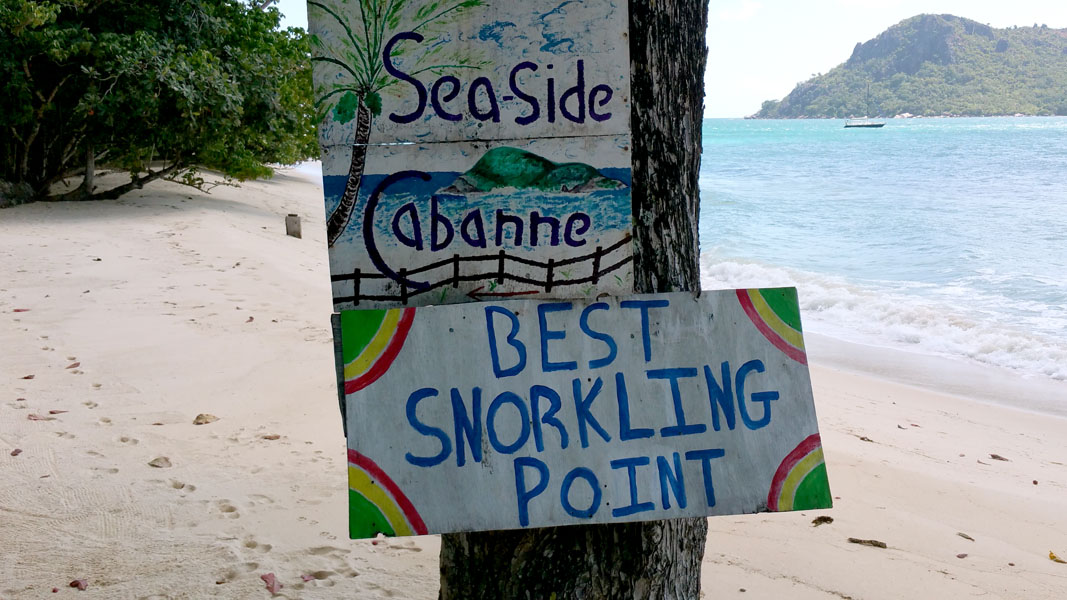 Sea-Side
Cabanne
BEST
SNORKLING
POINT